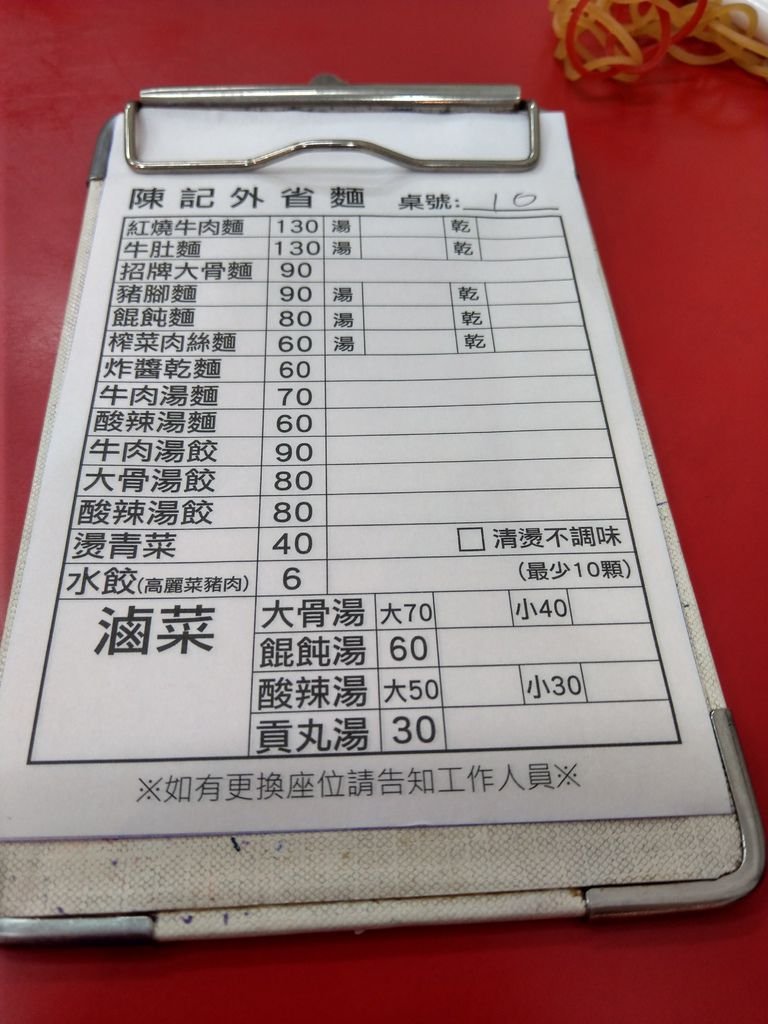 陳記外省麵 桌號: 10
紅燒牛肉麵 130 湯 乾
牛肚麵 130 湯 乾
招牌大骨麵 90
豬腳麵 90 湯 乾
餛飩麵 80 湯 乾
榨菜肉絲麵 60 湯 乾
炸醬乾麵 60
牛肉湯麵 70
酸辣湯麵 60
牛肉湯餃 90
大骨湯餃 80
酸辣湯餃 80
燙青菜 40 □ 清燙不調味
水餃(高麗菜豬肉) 6 (最少10顆)
滷菜 大骨湯 大70 小40
餛飩湯 60
酸辣湯 大50 小30
貢丸湯 30
※如有更換座位請告知工作人員※